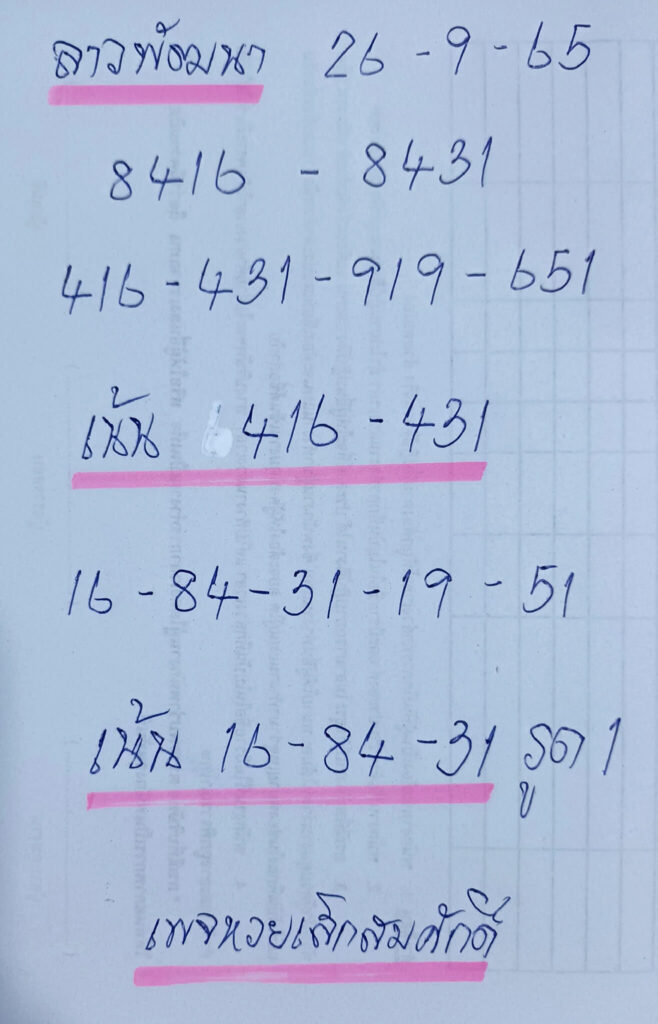 ลาวพัฒนา 26 - 9 - 65
8416 - 8431
416 - 431 - 919 - 651
เน้น 416 - 431
16 - 84 - 31 - 19 - 51
เน้น 16 - 84 - 31 รูด 1
เพจหวยเล็กสมศักดิ์